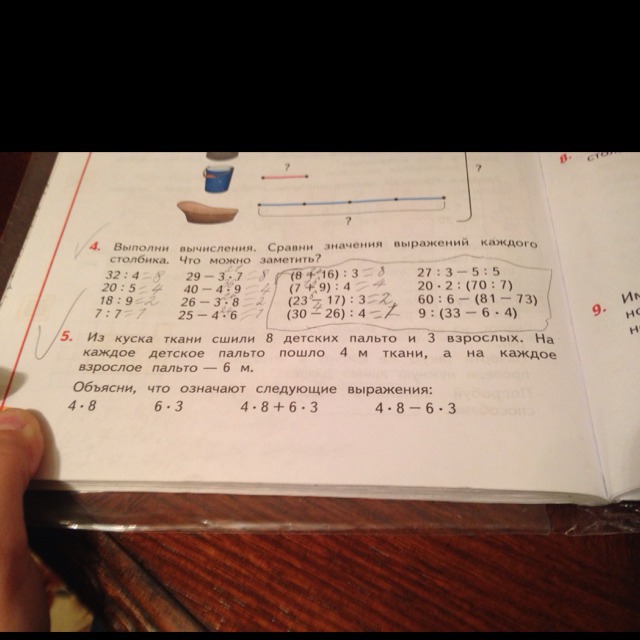 ?
?
?
8.
4. Выполни вычисления. Сравни значения выражений каждого
столбика. Что можно заметить?
32 : 4 = 8   29 − 3 · 7 = 8   (8 + 16) : 3 = 8   27 : 3 − 5 : 5
20 : 5 = 4   40 − 4 · 9 = 4   (7 + 9) : 4 = 4   20 · 2 : (70 : 7)
18 : 9 = 2   26 − 3 · 8 = 2   (23 − 17) : 3 = 2   60 : 6 − (81 − 73)
7 : 7 = 1   25 − 4 · 6 = 1   (30 − 26) : 4 = 1   9 : (33 − 6 · 4)
9.
5. Из куска ткани сшили 8 детских пальто и 3 взрослых. На
каждое детское пальто пошло 4 м ткани, а на каждое
взрослое пальто — 6 м.
Объясни, что означают следующие выражения:
4 · 8   6 · 3   4 · 8 + 6 · 3   4 · 8 − 6 · 3